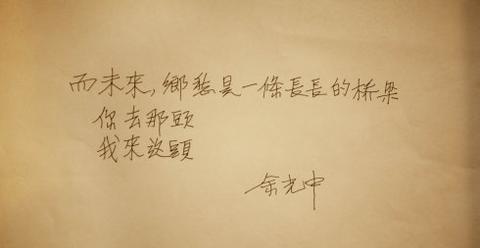 而未來,鄉愁是一條長長的桥梁
你去那頭
我來这頭
余光中